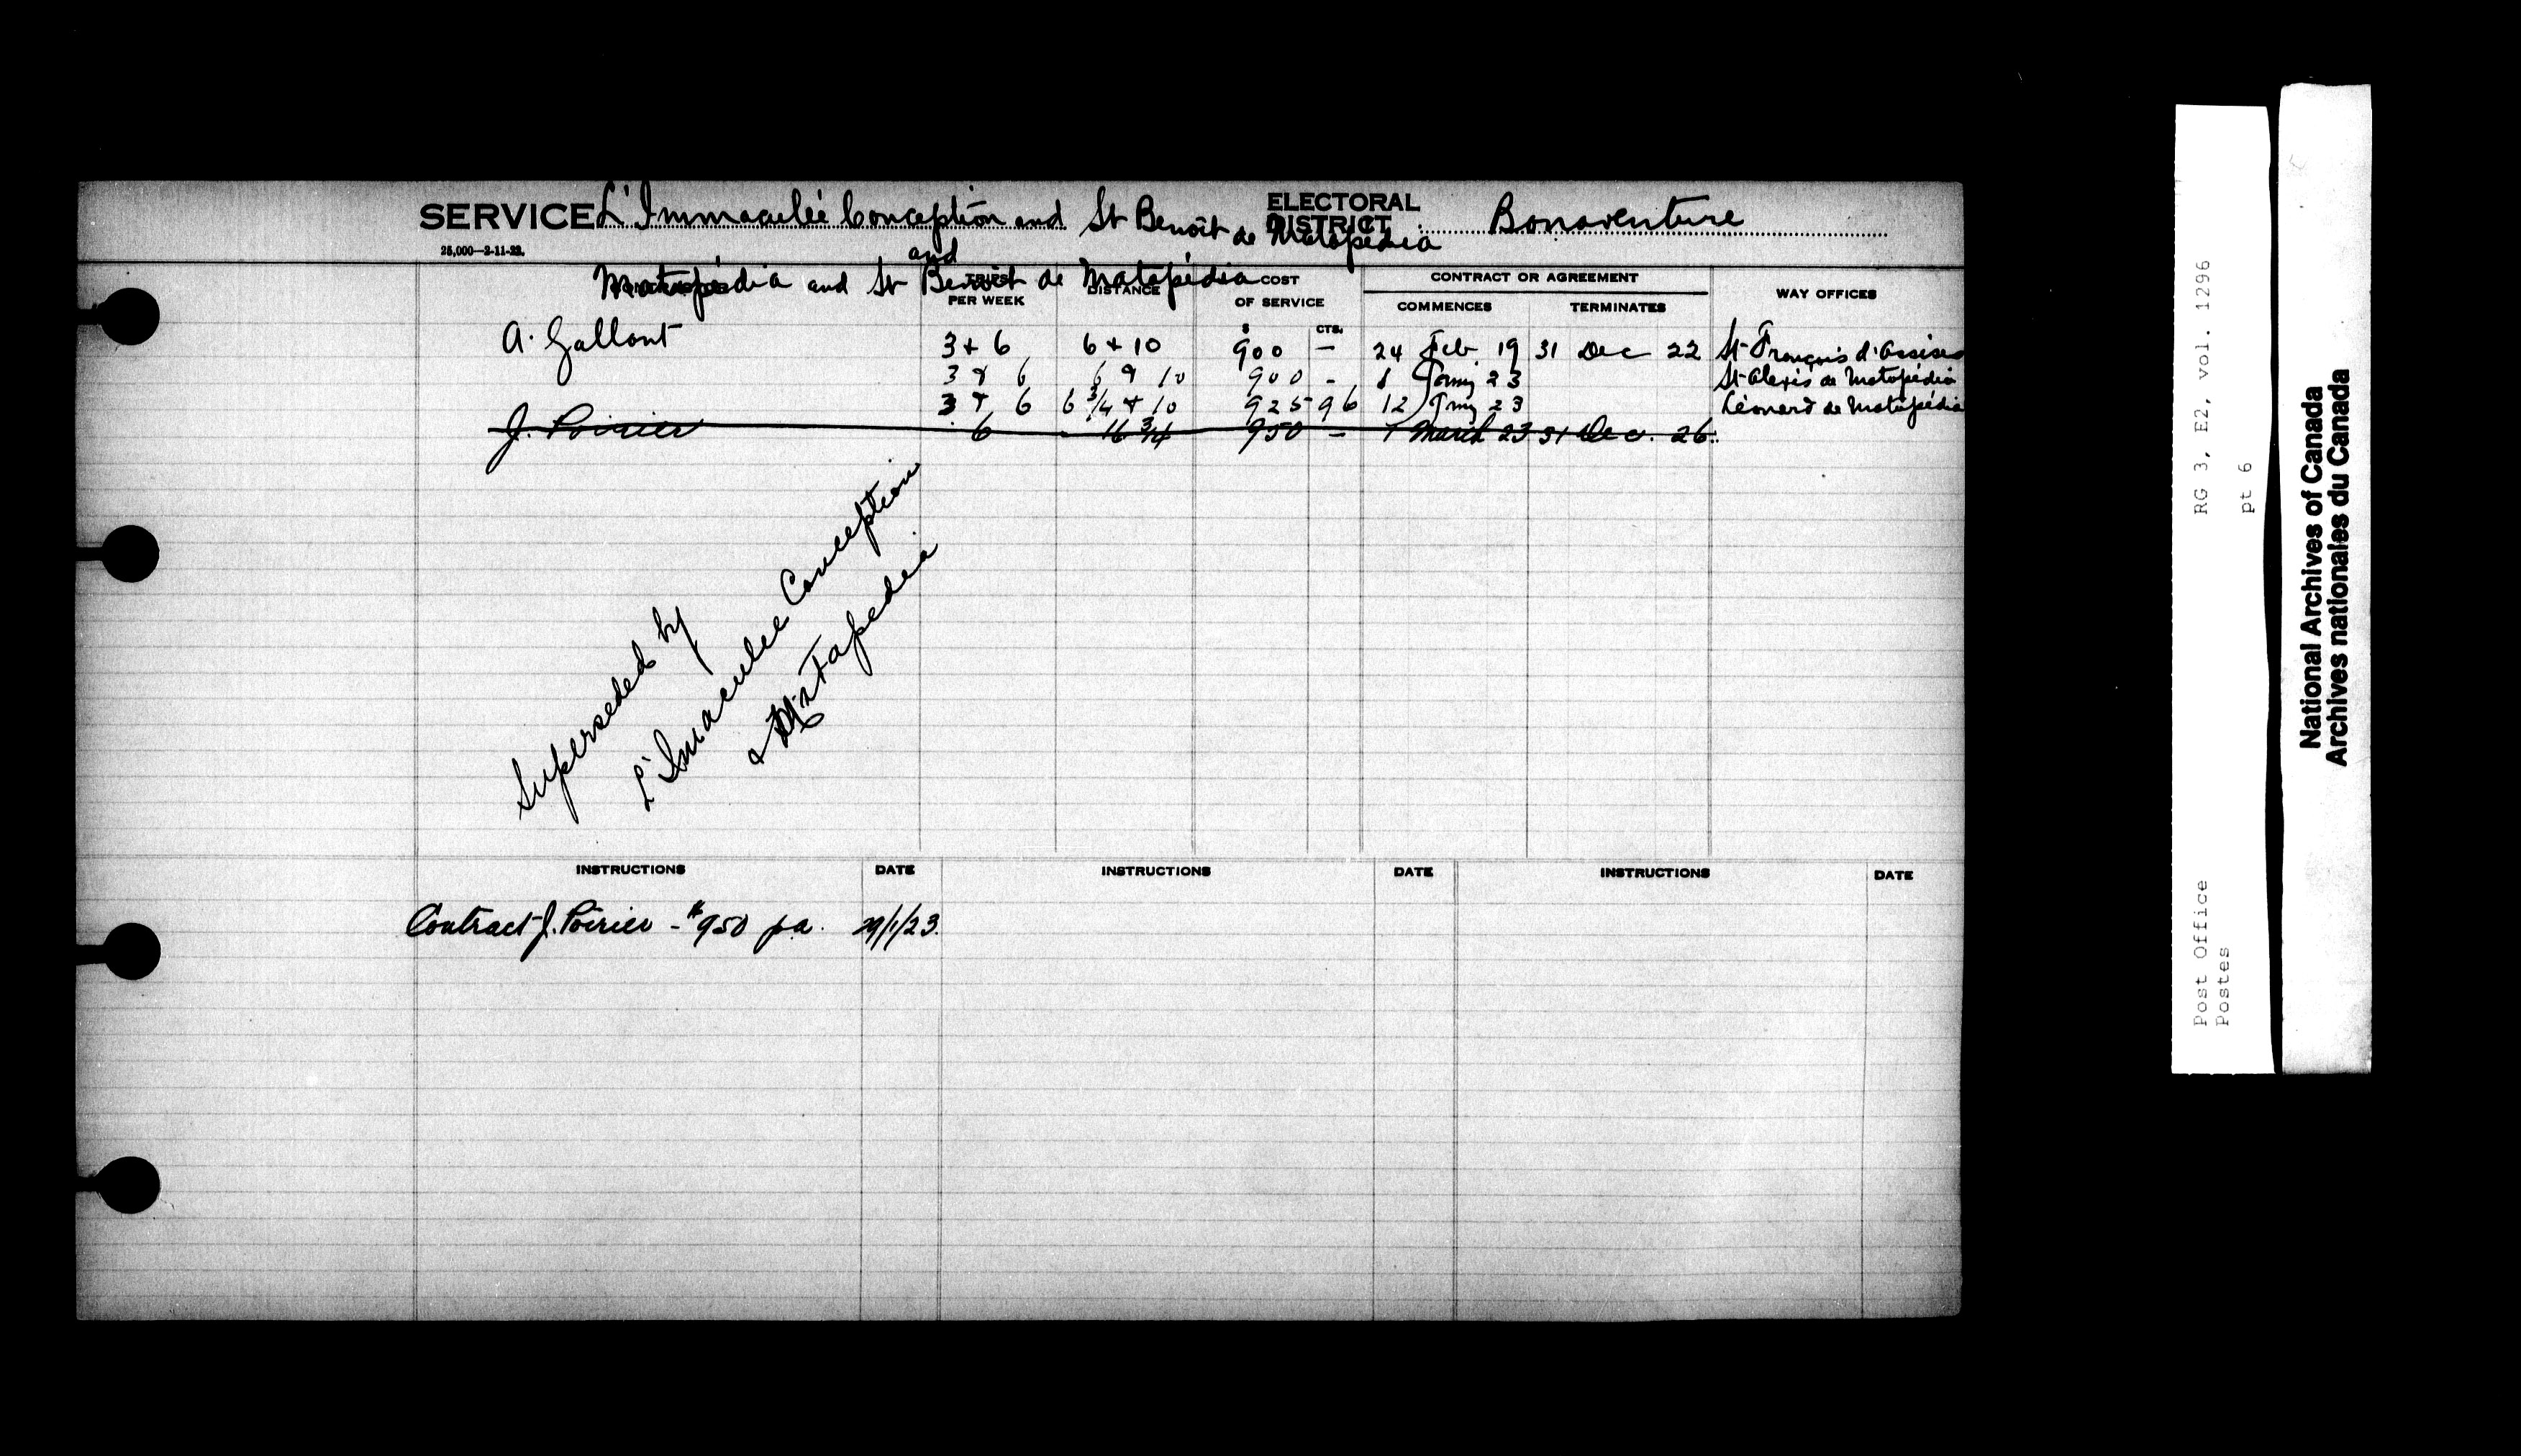 SERVICE L'Immaculée Conception and St Benoit de Matapédia ELECTORAL DISTRICT Bonaventure
25,000—2-11-22.
and
Matapédia and St Benoit de Matapédia
TRIPS PER WEEK DISTANCE COST OF SERVICE CONTRACT OR AGREEMENT WAY OFFICES
COMMENCES TERMINATES
$ CTS.
A. Gallant 3 + 6 6 + 10 900 – 24 Feb 19 31 Dec 22 St-François d'Assises
3 & 6 6 & 10 900 - 1 Jany 23 St-Alexis de Matapédia
3 & 6 6 3/4 & 10 925 96 12 Jny 23 Léonard de Matapédia
J. Poirier 6 - 16 3/4 950 – 1 March 23 31 Dec. 26
Superseded by
L'Imaculee Conception
& Matapedia
INSTRUCTIONS DATE INSTRUCTIONS DATE INSTRUCTIONS DATE
Contract J. Poirier - $950 pa. 29/1/23.
RG 3, E2, vol. 1296
pt 6
Post Office
Postes
National Archives of Canada
Archives nationales du Canada